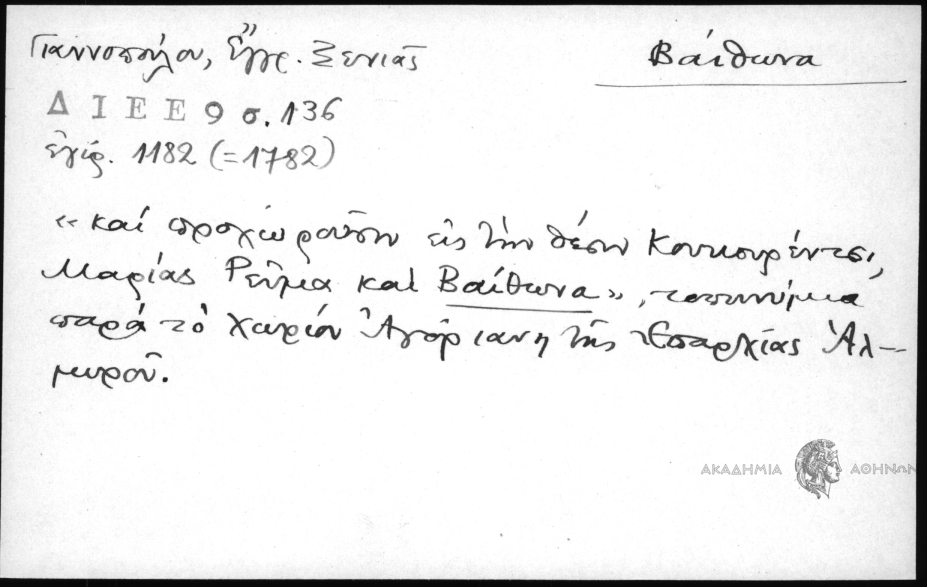 Γιαννοπούλου, Ἔγγρ. Ξενιᾶς
Βάϊθωνα
Δ Ι Ε Ε 9 σ. 136
ἐγίρ. 1182 (=1782)
«καὶ προχωροῦσιν εἰς τὴν θέσιν Κουκουρέντσι,
Μαρίας Ρεῦμα καὶ Βαΐθωνα», τοπωνύμια
παρὰ τὸ χωρίον Ἀγόριανη τῆς Ἐπαρχίας Ἀλ-
μυροῦ.
ΑΚΑΔΗΜΙΑ ΑΘΗΝΩΝ